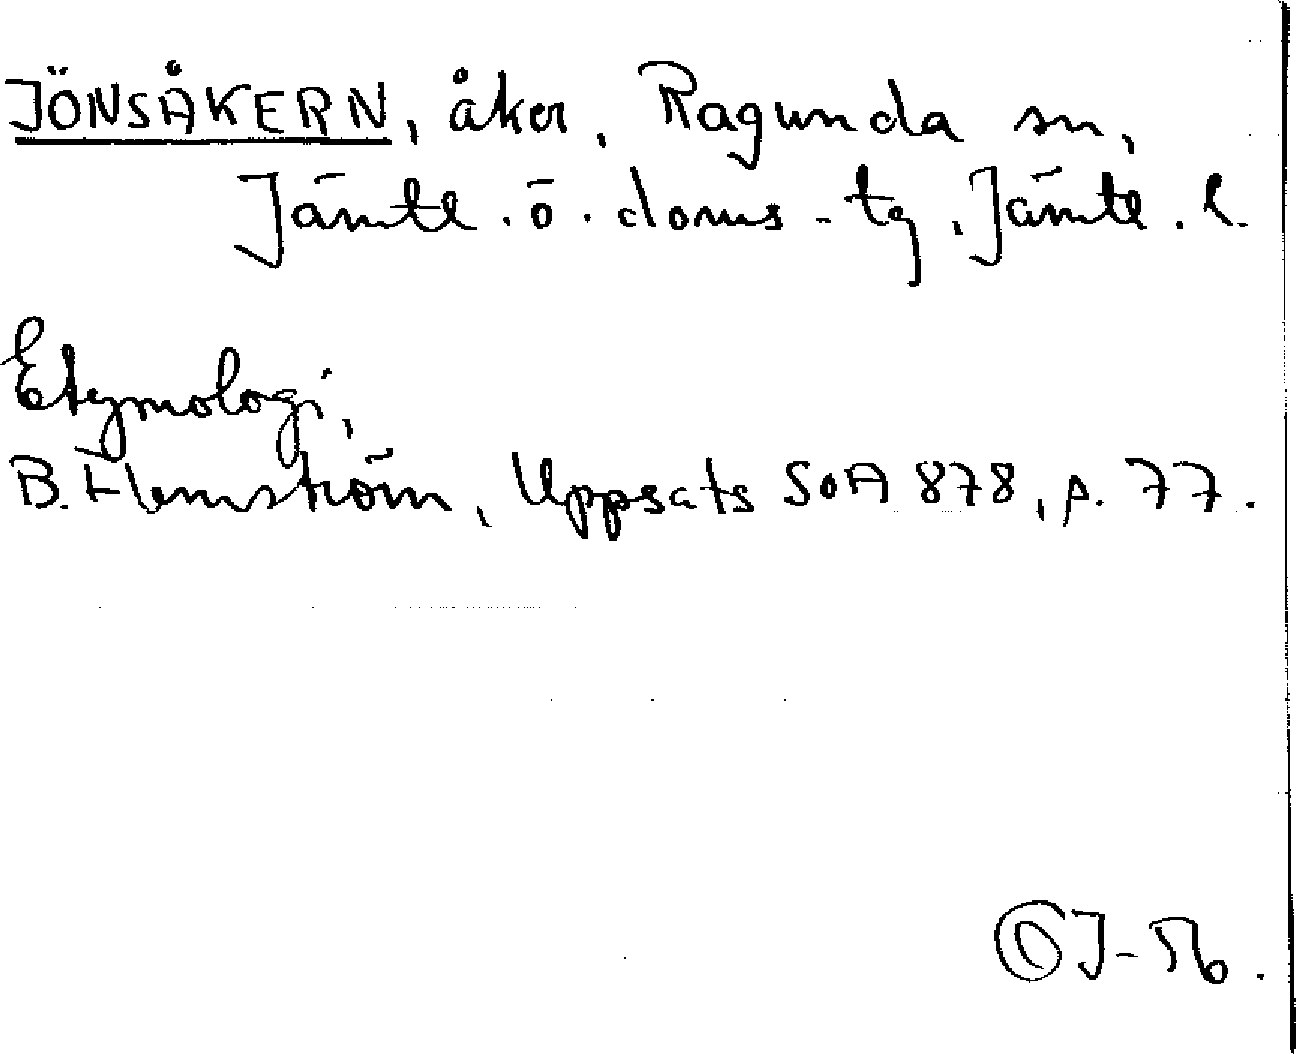 JÖNSÅKERN, åker, Ragunda sn,
Jämtl. ö. doms-tg, Jämtl. l.
Etymologi,
B. Hemström, Uppsats SOA 878, p. 77.
J-56.